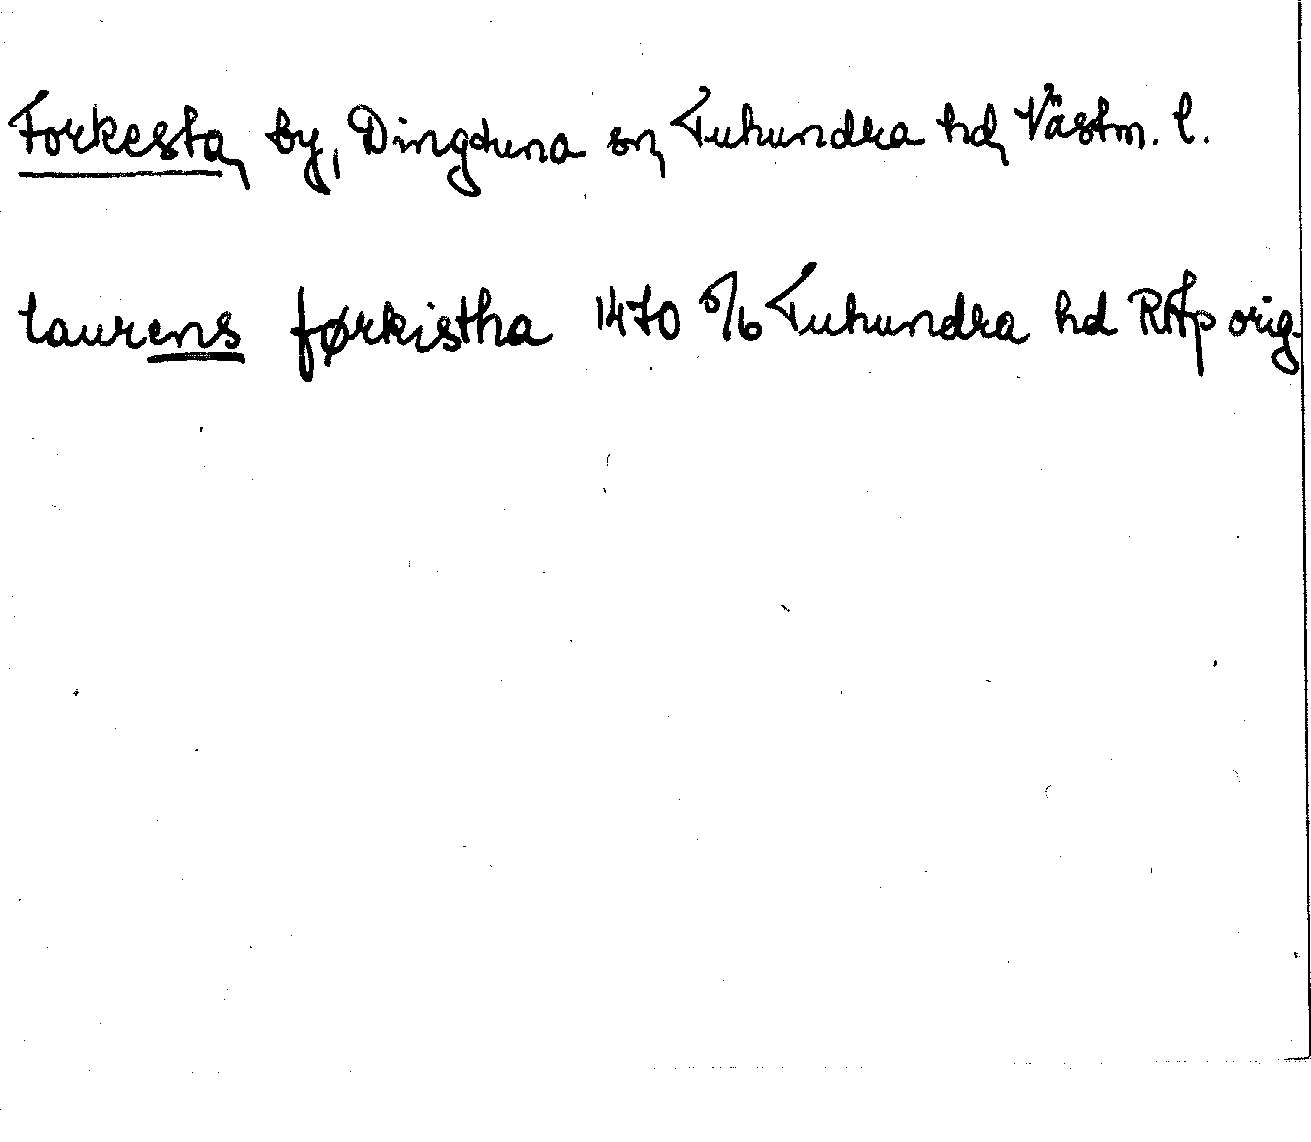 Forkesta, by, Dingtuna sn, Tuhundra hd, Västm. l.
laurens førkistha 1470 5/6 Tuhundra hd RAp orig.